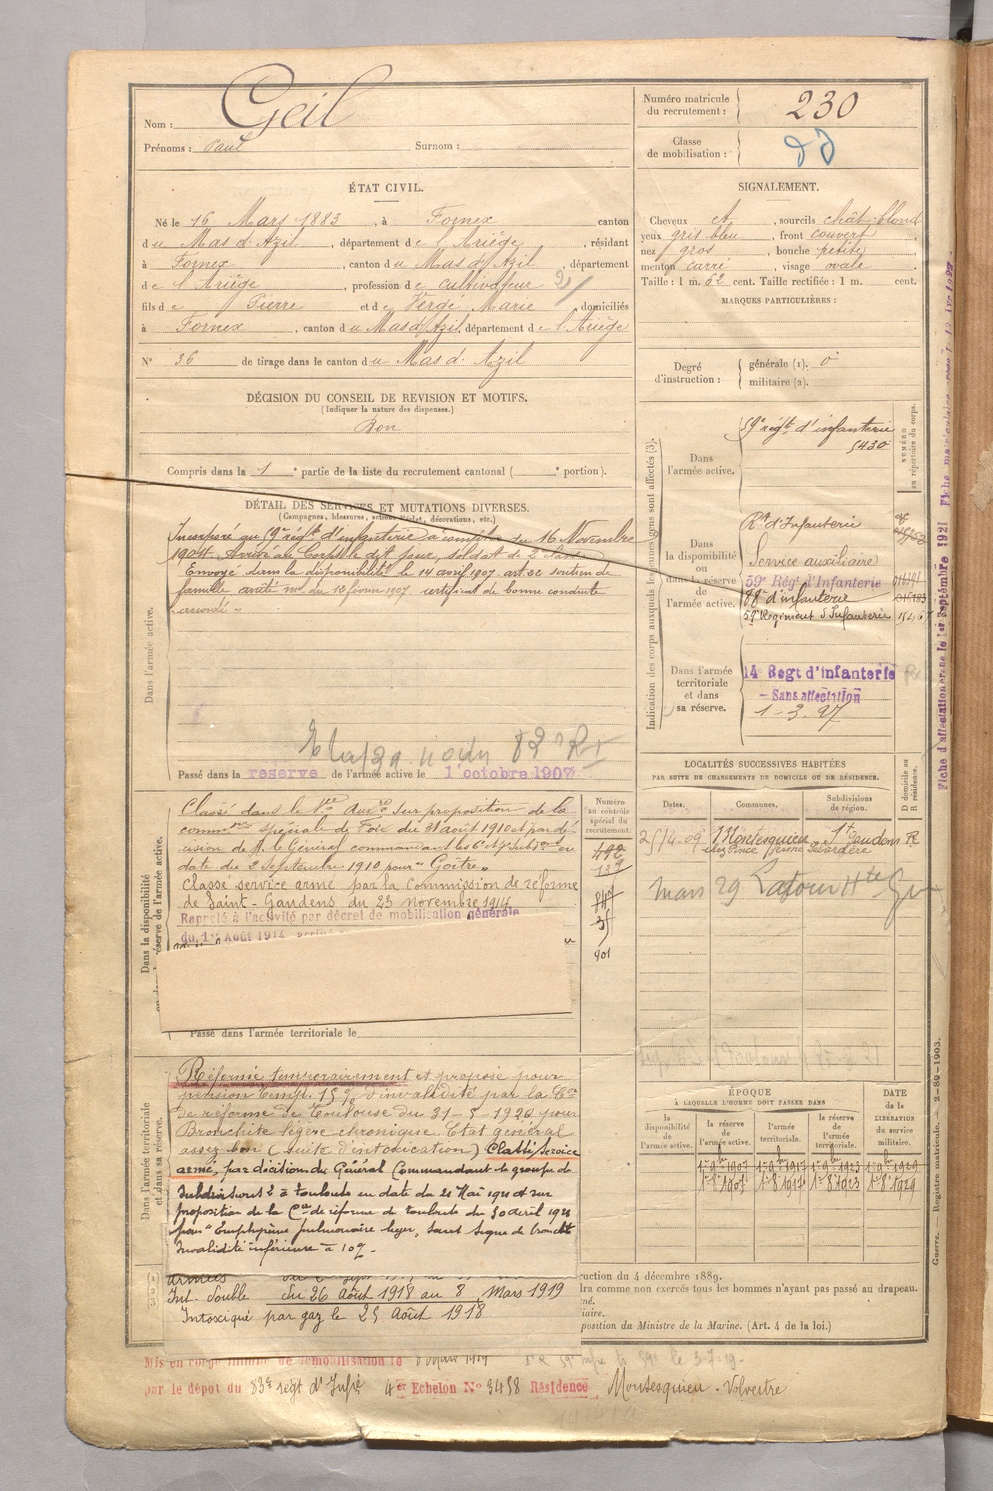 Nom : Geil
Prénoms : Paul Surnom :
Numéro matricule du recrutement : 230
Classe de mobilisation :
ÉTAT CIVIL.
Né le 16 Mars 1883, à Fornex canton
du Mas d'Azil, département de l'Ariège, résidant
à Fornex, canton du Mas d'Azil, département
de l'Ariège, profession de cultivateur 2/
fils de Pierre et de Vergé Marie, domiciliés
à Fornex, canton du Mas d'Azil, département de l'Ariège
N° 36 de tirage dans le canton du Mas d'Azil
SIGNALEMENT.
Cheveux et, sourcils chât. blond
yeux gris bleu, front couvert
nez gros, bouche petite
menton carré, visage ovale
Taille : 1 m. 62 cent. Taille rectifiée : 1 m. cent.
MARQUES PARTICULIÈRES :
Degré d'instruction : générale (1). 0
militaire (2).
DÉCISION DU CONSEIL DE REVISION ET MOTIFS.
(Indiquer la nature des dispenses.)
Bon
Compris dans la 1e partie de la liste du recrutement cantonal ( e portion).
DÉTAIL DES SERVICES ET MUTATIONS DIVERSES.
(Campagnes, blessures, actions d'éclat, décorations, etc.)
Dans l'armée active.
Incorporé au 59e régt d'infanterie à compter du 16 Novembre
1904. Arrivé au Corps le dit jour, soldat de 2e classe
Envoyé dans la disponibilité le 14 avril 1907. art. 22 soutien de
famille arrêté ml du 12 février 1907 certificat de bonne conduite
"accordé"
Passé dans la reserve de l'armée active le 1 octobre 1907
Indication des corps auxquels les jeunes gens sont affectés (3).
NUMÉRO au répertoire du corps.
Dans l'armée active. 59e régt d'infanterie
5430
Dans la disponibilité ou dans la réserve de l'armée active.
Rt d'Infanterie
Service auxiliaire
59e Régt d'Infanterie
88e d'infanterie
59e Régiment d'Infanterie
Dans l'armée territoriale et dans sa réserve.
14e Regt d'infanterie
- Sans affectation
1-3-27
LOCALITÉS SUCCESSIVES HABITÉES
PAR SUITE DE CHANGEMENTS DE DOMICILE OU DE RÉSIDENCE.
Dates. Communes. Subdivisions de région. D domicile ou R résidence.
25-4-09 Montesquieu St Gaudens R
mars 29 Latour Hte Gne
Dans la disponibilité ou dans la réserve de l'armée active.
Numéro au contrôle spécial du recrutement.
Classé dans le Sce Auxre sur proposition de la
common spéciale de Foix du 31 août 1910 et par dé-
cision de M. le Général commandant les 6e et 7e Subdons en
date du 2 Septembre 1910 pour "Goître"
Classé service armé par la Commission de réforme
de Saint-Gaudens du 23 novembre 1914
Rappelé à l'activité par décret de mobilisation générale
du 1er Août 1914
901
Passé dans l'armée territoriale le
Dans l'armée territoriale et dans sa réserve.
Réformé temporairement et proposé pour
pension temp. 15% d'invalidité par la Con
de réforme de Toulouse du 31-8-1920 pour
Bronchite légère chronique. Etat général
assez bon (suite d'intoxication) Classé Service
armé, par décision du Général Commandant le groupe de
Subdivisions 2 à Toulouse en date du 21 Mai 1921 sur
proposition de la Con de réforme de Toulouse du 30 avril 1921
pour "Emphysème pulmonaire léger, sans signe de bronchite
Invalidité inférieure à 10%.
Int. double du 26 Août 1918 au 8 Mars 1919
Intoxiqué par gaz le 25 Août 1918
ÉPOQUE
À LAQUELLE L'HOMME DOIT PASSER DANS
la disponibilité de l'armée active. la réserve de l'armée active. l'armée territoriale. la réserve de l'armée territoriale.
DATE de la LIBÉRATION du service militaire.
1er 8bre 1907 1er 8bre 1917 1er 8bre 1923 1er 8bre 1929
ruction du 4 décembre 1889.
dra comme non exercés tous les hommes n'ayant pas passé au drapeau.
né.
iaire.
position du Ministre de la Marine. (Art. 4 de la loi.)
Mis en congé illimité de démobilisation le 8 Mars 1919
par le dépot du 83e régt d'Infie 4er Echelon N° 3458 Résidence Montesquieu-Volvestre
Guerre. — Registre matricule. — 2-89-1903.